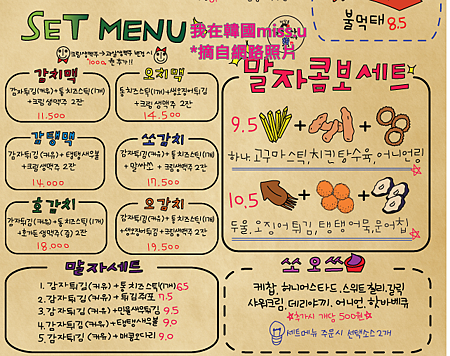 SET MENU
我在韓國miss.u
*摘自網路照片
불먹태 8.5
크림생맥주 → 과일생맥주 변경 시
1000원 추가!!
감치맥
감자튀김(커유)+통치즈스틱(1개)
+크림생맥주 2잔
11.500
오치맥
통치즈스틱(1개)+생오징어튀김
+크림생맥주 2잔
14.500
감탱맥
감자튀김(커유)+탱탱새우볼
+크림생맥주 2잔
14.000
쏘감치
감자튀김(커유)+통치즈스틱(1개)
+말싸쏘 + 크림생맥주 2잔
17.500
호감치
감자튀김(커유)+통치즈스틱(1개)
+호가든생맥주(중) 2잔
18.000
오감치
감자튀김(커유)+통치즈스틱(1개)
+생오징어튀김+크림생맥주 2잔
19.500
말자콤보세트
9.5
하나. 고구마스틱, 치킨탕수육, 어니언링
10.5
두울. 오징어튀김, 탱탱어묵, 문어칩
말자세트
1. 감자튀김(커유)+통치즈스틱(1개) 6.5
2. 감자튀김(커유)+튀김쥐포 7.5
3. 감자튀김(커유)+민물새우튀김 9.5
4. 감자튀김(커유)+탱탱새우볼 9.0
5. 감자튀김(커유)+매콤오다리 9.0
쏘오쓰
케찹, 허니머스타드, 스위트칠리, 갈릭
샤워크림, 데리야끼, 어니언, 핫바베큐
추가시 개당 500원
세트메뉴 주문시 선택소스2개